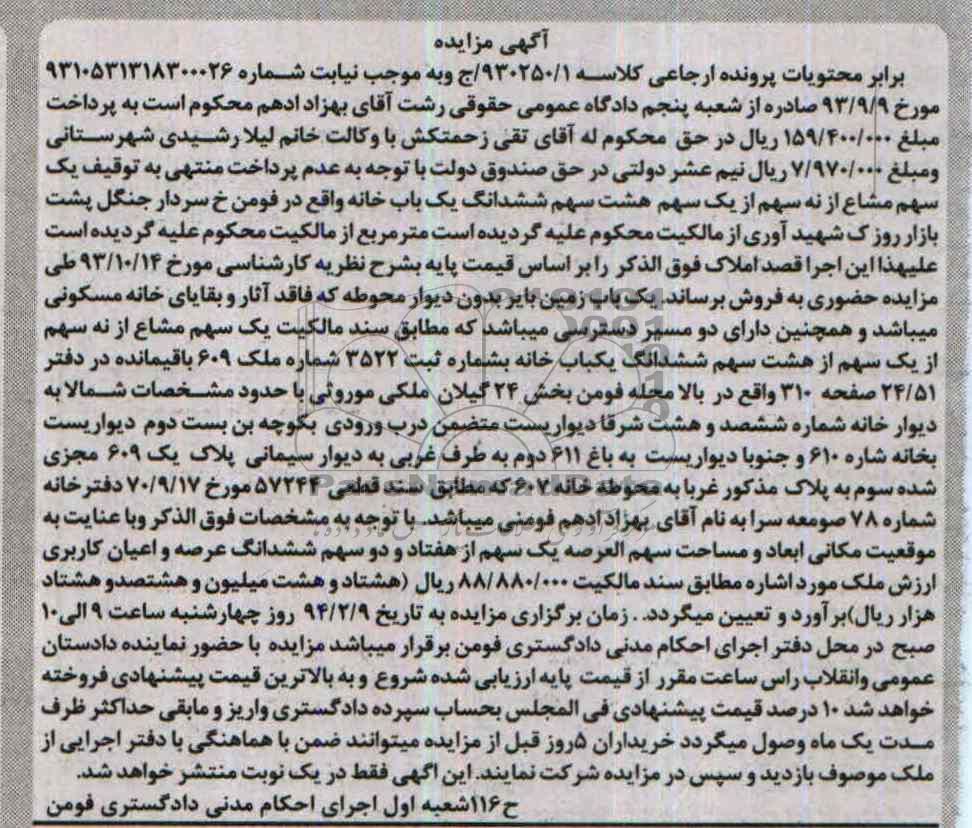 آگهی مزایده
برابر محتویات پرونده ارجاعی کلاسه ۹۳۰۲۵۰/۱/ج وبه موجب نیابت شماره ۹۳۱۰۵۳۱۳۱۸۳۰۰۰۲۶
مورخ ۹۳/۹/۹ صادره از شعبه پنجم دادگاه عمومی حقوقی رشت آقای بهزاد ادهم محکوم است به پرداخت
مبلغ ۱۵۹/۴۰۰/۰۰۰ ریال در حق محکوم له آقای تقی زحمتکش با وکالت خانم لیلا رشیدی شهرستانی
ومبلغ ۷/۹۷۰/۰۰۰ ریال نیم عشر دولتی در حق صندوق دولت با توجه به عدم پرداخت منتهی به توقیف یک
سهم مشاع از نه سهم از یک سهم هشت سهم ششدانگ یک باب خانه واقع در فومن خ سردار جنگل پشت
بازار روز ک شهید آوری از مالکیت محکوم علیه گردیده است مترمربع از مالکیت محکوم علیه گردیده است
علیهذا این اجرا قصد املاک فوق الذکر را بر اساس قیمت پایه بشرح نظریه کارشناسی مورخ ۹۳/۱۰/۱۴ طی
مزایده حضوری به فروش برساند. یک باب زمین بایر بدون دیوار محوطه که فاقد آثار و بقایای خانه مسکونی
میباشد و همچنین دارای دو مسیر دسترسی میباشد که مطابق سند مالکیت یک سهم مشاع از نه سهم
از یک سهم از هشت سهم ششدانگ یکباب خانه بشماره ثبت ۳۵۲۲ شماره ملک ۶۰۹ باقیمانده در دفتر
۲۴/۵۱ صفحه ۳۱۰ واقع در بالا محله فومن بخش ۲۴ گیلان ملکی موروثی با حدود مشخصات شمالا به
دیوار خانه شماره ششصد و هشت شرقا دیواریست متضمن درب ورودی بکوچه بن بست دوم دیواریست
بخانه شاره ۶۱۰ و جنوبا دیواریست به باغ ۶۱۱ دوم به طرف غربی به دیوار سیمانی پلاک یک ۶۰۹ مجزی
شده سوم به پلاک مذکور غربا به محوطه خانه ۶۰۷ که مطابق سند قطعی ۵۷۲۴۴ مورخ ۷۰/۹/۱۷ دفترخانه
شماره ۷۸ صومعه سرا به نام آقای بهزاد ادهم فومنی میباشد. با توجه به مشخصات فوق الذکر وبا عنایت به
موقعیت مکانی ابعاد و مساحت سهم العرصه یک سهم از هفتاد و دو سهم ششدانگ عرصه و اعیان کاربری
ارزش ملک مورد اشاره مطابق سند مالکیت ۸۸/۸۸۰/۰۰۰ ریال (هشتاد و هشت میلیون و هشتصدو هشتاد
هزار ریال)برآورد و تعیین میگردد. . زمان برگزاری مزایده به تاریخ ۹۴/۲/۹ روز چهارشنبه ساعت ۹ الی۱۰
صبح در محل دفتر اجرای احکام مدنی دادگستری فومن برقرار میباشد مزایده با حضور نماینده دادستان
عمومی وانقلاب راس ساعت مقرر از قیمت پایه ارزیابی شده شروع و به بالاترین قیمت پیشنهادی فروخته
خواهد شد ۱۰ درصد قیمت پیشنهادی فی المجلس بحساب سپرده دادگستری واریز و مابقی حداکثر ظرف
مدت یک ماه وصول میگردد خریداران ۵روز قبل از مزایده میتوانند ضمن با هماهنگی با دفتر اجرایی از
ملک موصوف بازدید و سپس در مزایده شرکت نمایند. این اگهی فقط در یک نوبت منتشر خواهد شد.
ح۱۱۶شعبه اول اجرای احکام مدنی دادگستری فومن